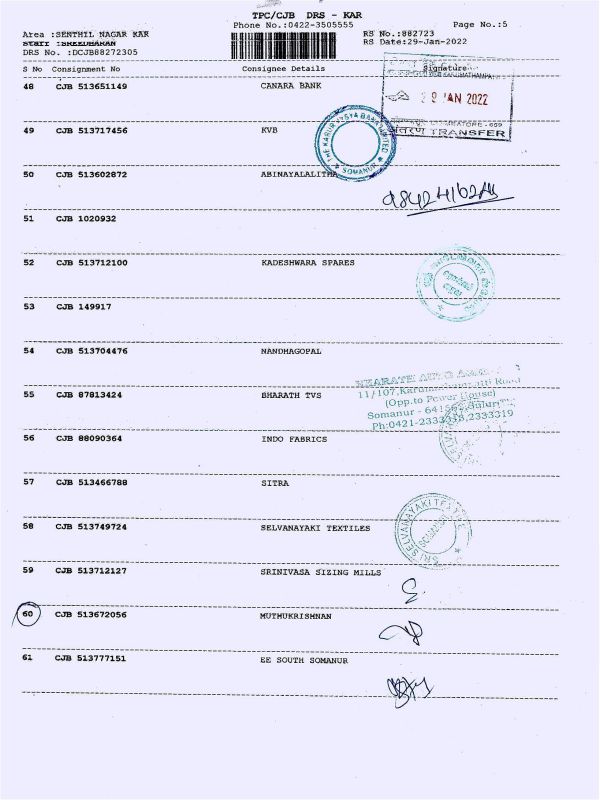 TPC/CJB DRS - KAR
Phone No.:0422-3505555
Page No.:5
Area :SENTHIL NAGAR KAR
RS No.:882723
Staff :SREEDHARAN
RS Date:29-Jan-2022
DRS No. :DCJB88272305
S No Consignment No Consignee Details Signature
48 CJB 513651149 CANARA BANK
29 JAN 2022
TRANSFER
49 CJB 513717456 KVB
THE KARUR VYSYA BANK LIMITED
SOMANUR
50 CJB 513602872 ABINAYALALITHA
51 CJB 1020932
52 CJB 513712100 KADESHWARA SPARES
53 CJB 149917
54 CJB 513704476 NANDHAGOPAL
BHARATH AUTO
55 CJB 87813424 BHARATH TVS
11/107,
(Opp.to Power House)
Somanur -
Ph:0421- 2333319
56 CJB 88090364 INDO FABRICS
57 CJB 513466788 SITRA
58 CJB 513749724 SELVANAYAKI TEXTILES
SRI SELVANAYAKI TEXTILE
SOMANUR
59 CJB 513712127 SRINIVASA SIZING MILLS
60 CJB 513672056 MUTHUKRISHNAN
61 CJB 513777151 EE SOUTH SOMANUR